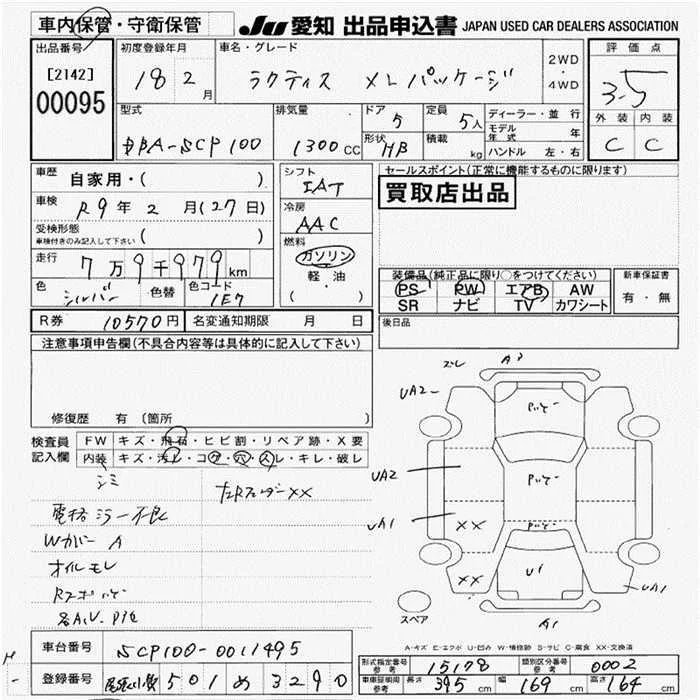 車内保管・守衛保管
JU 愛知 出品申込書 JAPAN USED CAR DEALERS ASSOCIATION
出品番号
[2142]
00095
初度登録年月
18 2月
車名・グレード
ラクティス XLパッケージ
2WD・4WD
評価点
3.5
外装 内装
C C
型式
DBA-SCP100
排気量
1300CC
ドア
5
形状
HB
定員
5人
積載 kg
ディーラー・並行
モデル年式 年
ハンドル 左・右
車歴 自家用・( )
車検 R9年2月(27日)
受検形態 ( )
車検付きのみ記入して下さい
走行 7万9千979km
色 シルバー 色替 色コード 1E7
シフト
IAT
冷房
AAC
燃料
ガソリン
軽・油
( )
セールスポイント(正常に機能するものに限ります)
買取店出品
装備品(純正品に限り○をつけてください)
PS PW エアB AW
SR ナビ TV カワシート
新車保証書
有・無
R券 10570円 名変通知期限 月 日
後日品
注意事項申告欄(不具合内容等は具体的に記入して下さい)
修復歴 有(箇所
検査員記入欄
FW キズ・飛石・ヒビ割・リペア跡・X要
内装 キズ・汚レ・コゲ・穴・スレ・キレ・破レ
シミ
電格ミラー不良
Wカバー A
オイルモレ
左Rフェンダー XX
ズレ A3
UA2
UA2
UA1
XX
XX
U1
UA1
A1
スペア
A-キズ E-エクボ U-凹み W-補修跡 S-サビ C-腐食 XX-交換済
車台番号 SCP100-0011495
登録番号 501 め 3290
形式指定番号 参考 15178 類別区分番号 参考 0002
車庫証明用 参考 長さ 395cm 幅 169cm 高さ 164cm